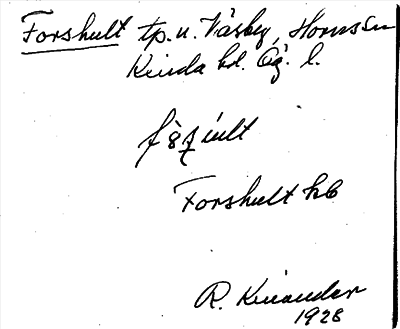 Forshult tp. u. Väsby, Hornssn
Kinda hd. Ög. l.
Forshult hb
R. Kinander
1928